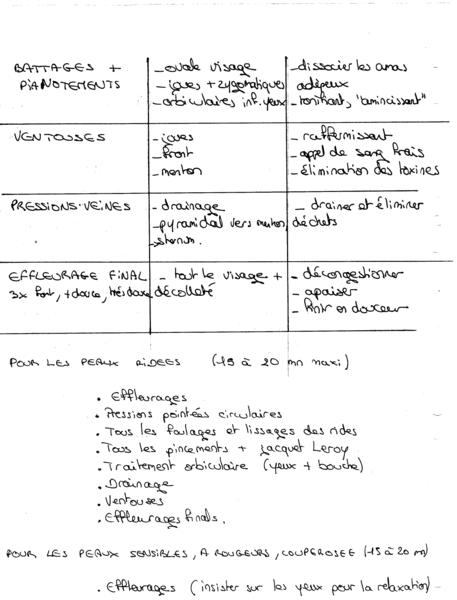 BATTAGES +
PIANOTEMENTS
- ovale visage
- joues + zygomatiques
- orbiculaires inf. yeux
- dissocier les amas
adipeux
- tonifiant, "amincissant"
VENTOUSES
- joues
- front
- menton
- raffermissant
- appel de sang frais
- élimination des toxines
PRESSIONS-VEINES
- drainage
- pyramidal vers menton,
- sternum.
- drainer et éliminer
déchets
EFFLEURAGE FINAL
3x fort, + douce, très douce
- tout le visage +
décolleté
- décongestionner
- apaiser
- finir en douceur
POUR LES PEAUX RIDEES (15 à 20 mn maxi)
. Effleurages
. Pressions pointées circulaires
. Tous les foulages et lissages des rides
. Tous les pincements + Jacquet Leroy
. Traitement orbiculaire (yeux + bouche)
. Drainage
. Ventouses
. Effleurages finals.
POUR LES PEAUX SENSIBLES, A ROUGEURS, COUPEROSEE (15 à 20 mn)
. Effleurages (insister sur les yeux pour la relaxation)